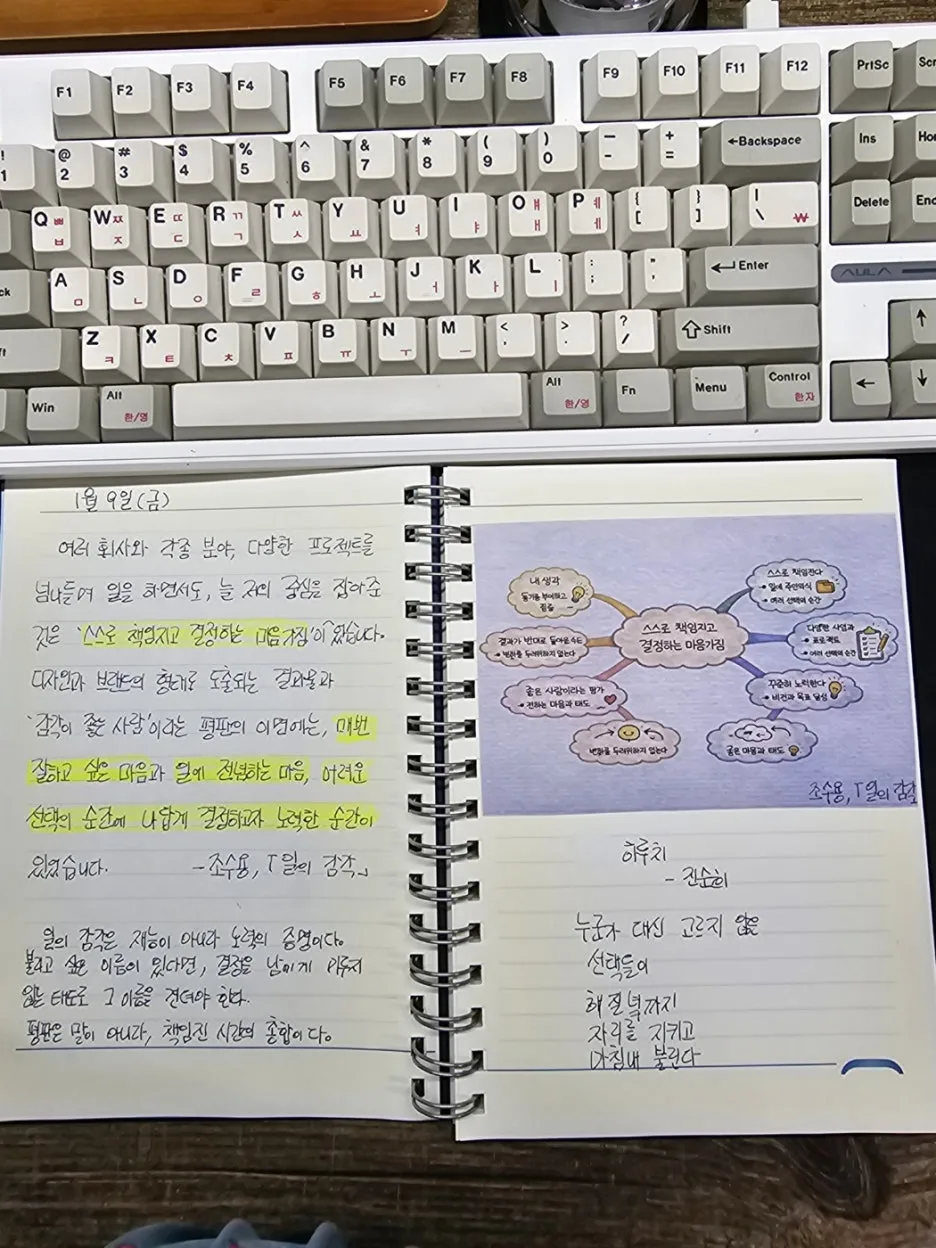 F1 F2 F3 F4 F5 F6 F7 F8 F9 F10 F11 F12 PrtSc
! 1 @ 2 # 3 $ 4 % 5 ^ 6 & 7 * 8 ( 9 ) 0 — - + = ←Backspace Ins
Q ㅃ ㅂ W ㅉ ㅈ E ㄸ ㄷ R ㄲ ㄱ T ㅆ ㅅ Y ㅛ U ㅕ I ㅑ O ㅒ ㅐ P ㅖ ㅔ { [ } ] | \ ₩ Delete End
A ㅁ S ㄴ D ㅇ F ㄹ G ㅎ H ㅗ J ㅓ K ㅏ L ㅣ : ; " ' Enter AULA
Z ㅋ X ㅌ C ㅊ V ㅍ B ㅠ N ㅜ M ㅡ < , > . ? / Shift ↑
Win Alt 한/영 Alt 한/영 Fn Menu Control 한자 ← ↓
1월 9일(금)
여러 회사와 각종 분야, 다양한 프로젝트를
넘나들며 일을 하면서도, 늘 저의 중심을 잡아준
것은 '스스로 책임지고 결정하는 마음가짐'이었습니다.
디자인과 브랜드의 형태로 도출되는 결과물과
'감각이 좋은 사람'이라는 평판의 이면에는, 매번
잘하고 싶은 마음과 일에 전념하는 마음, 어려운
선택의 순간에 나답게 결정하고자 노력한 순간이
있었습니다. -조수용, 「일의 감각」
일의 감각은 재능이 아니라 노력의 증명이다.
불리고 싶은 이름이 있다면, 결정을 남에게 미루지
않는 태도로 그 이름을 견뎌야 한다.
평판은 말이 아니라, 책임진 시간의 총합이다.
내 생각
동기를 부여하고
결과가 반대로 돌아온 수도
• 변화를 두려워하지 않는다
좋은 사람이라는 평가
• 전하는 마음과 태도
변화를 두려워하지 않는다
스스로 책임지고
결정하는 마음가짐
스스로 책임진다
• 일에 주인의식
• 여러 선택의 순간
다양한 사업과
• 프로젝트
• 여러 선택의 순간
꾸준히 노력한다
• 비전과 목표 달성
좋은 마음과 태도
조수용, 「일의 감각
하루치
- 진순희
누군가 대신 고르지 않은
선택들이
해 질 녘까지
자리를 지키고
마침내 불린다